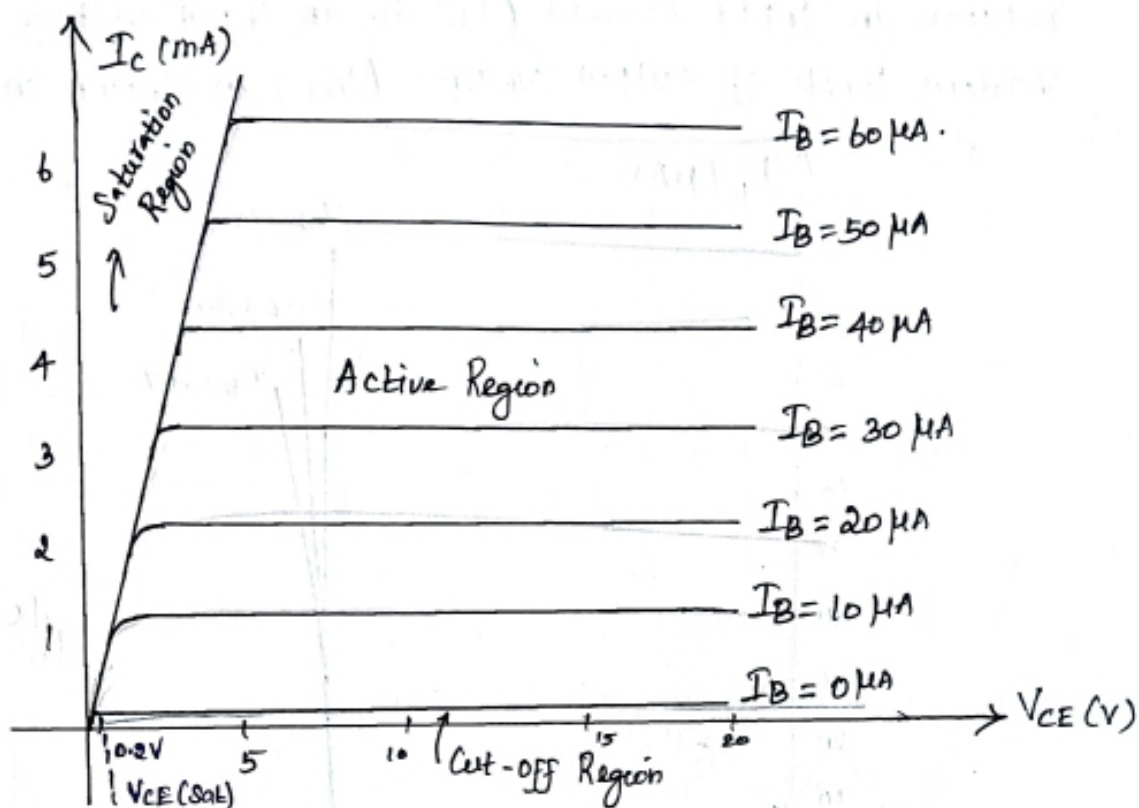 I_C (mA)
Saturation
Region
6
5
4
3
2
1
I_B = 60 μA.
I_B = 50 μA
I_B = 40 μA
Active Region
I_B = 30 μA
I_B = 20 μA
I_B = 10 μA
I_B = 0 μA
V_CE (V)
0.2V
5
10
15
20
V_CE (Sat)
Cut-off Region